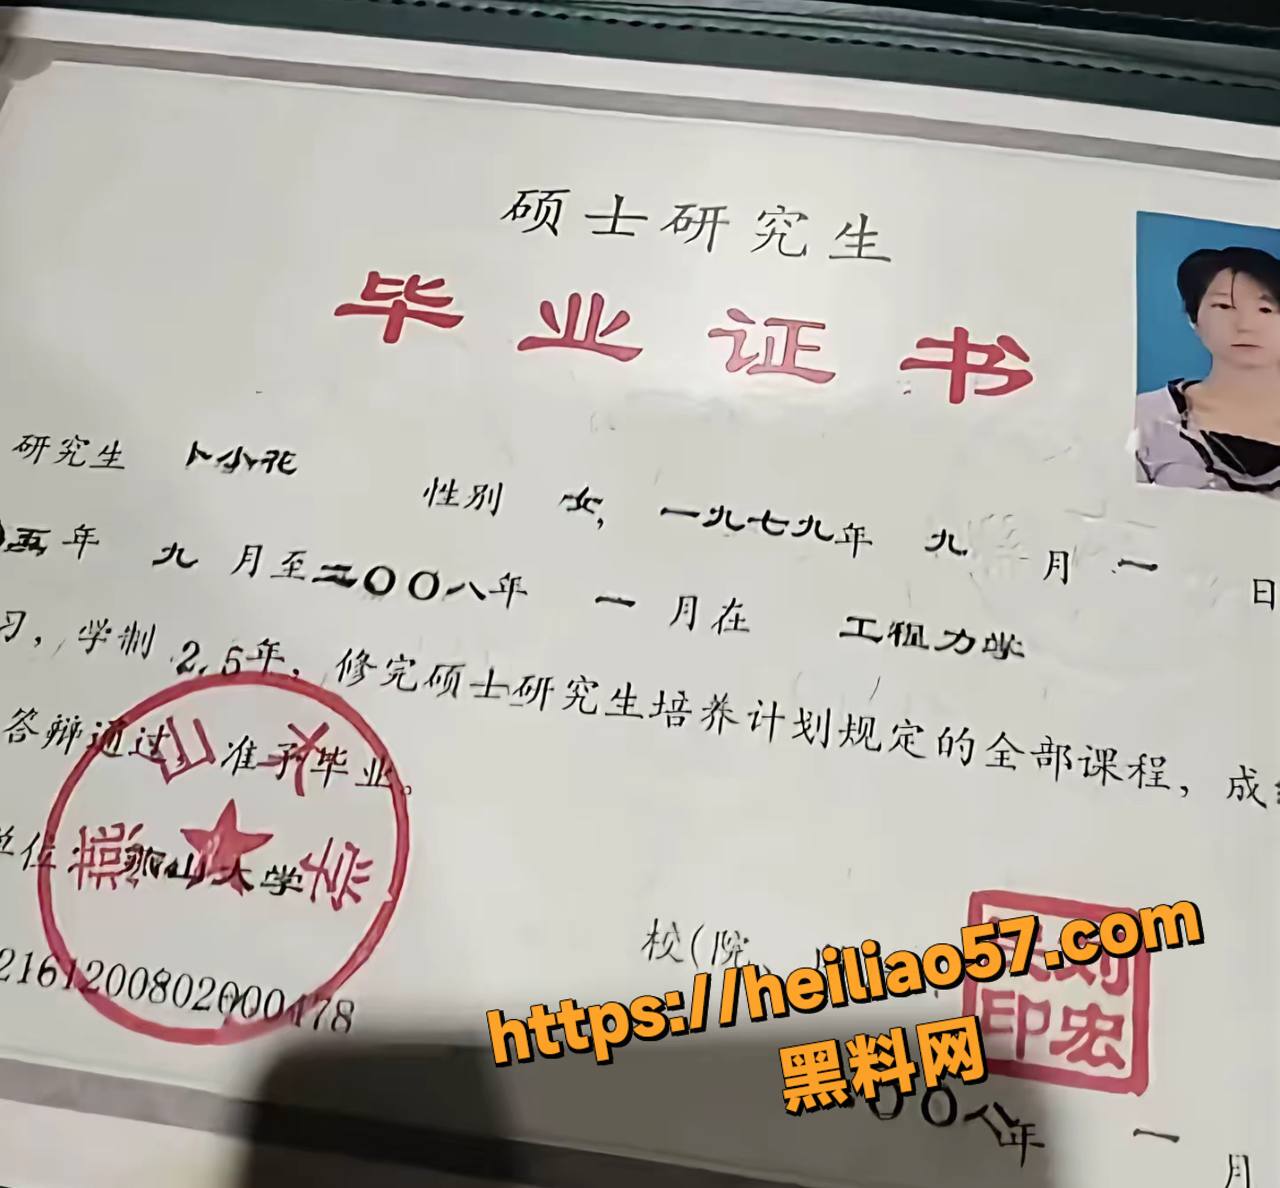 硕士研究生
毕业证书
研究生 卜小花 性别 女, 一九七九年 九 月 一 日
五年 九 月至二〇〇八年 一 月在 工程力学
习，学制 2.5年，修完硕士研究生培养计划规定的全部课程，成
答辩通过，准予毕业。
单位 燕山大学
燕山大学
校(院、
2161200802000478
刘
印宏
https://heiliao57.com
黑料网
〇〇八年 一 月